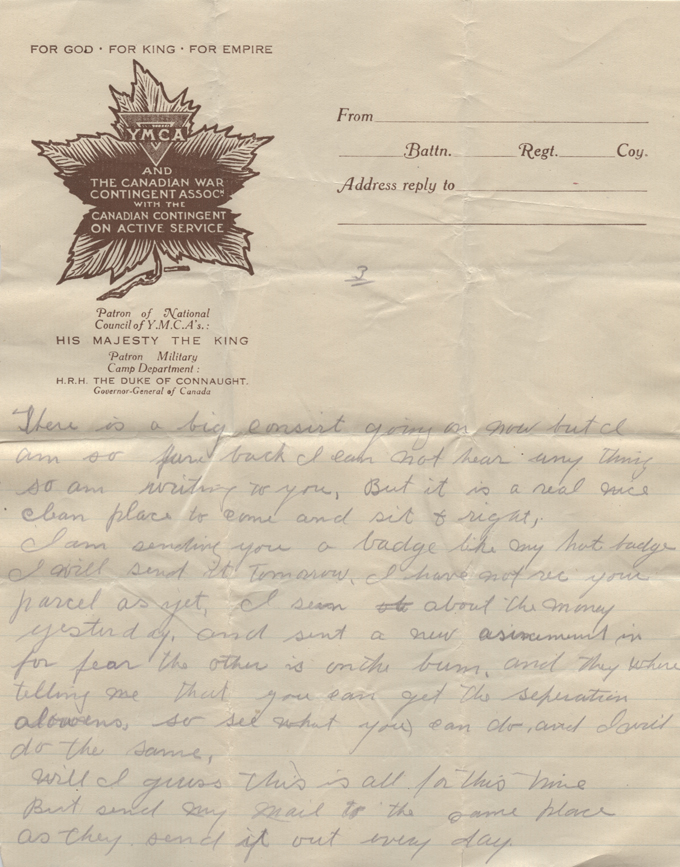 FOR GOD · FOR KING · FOR EMPIRE
YMCA
AND
THE CANADIAN WAR
CONTINGENT ASSOCN
WITH THE
CANADIAN CONTINGENT
ON ACTIVE SERVICE
Patron of National
Council of Y.M.C.A's.:
HIS MAJESTY THE KING
Patron Military
Camp Department:
H.R.H. THE DUKE OF CONNAUGHT.
Governor-General of Canada
From
Battn. Regt. Coy.
Address reply to
3
There is a big consirt going on now but I
am so fure back I can not hear any thing
so am writing to you. But it is a real nice
clean place to come and sit & right.
I am sending you a badge like my hat badge
I will send it Tomorrow. I have not rec your
parcel as yet, I seen about the money
yesterday. and sent a new asinement in
for fear the other is on the bum. and they where
telling me that you can get the seperation
alowens, so see what you can do, and I will
do the same.
Will I guess this is all for this time
But send my mail to the same place
as they send it out every day.